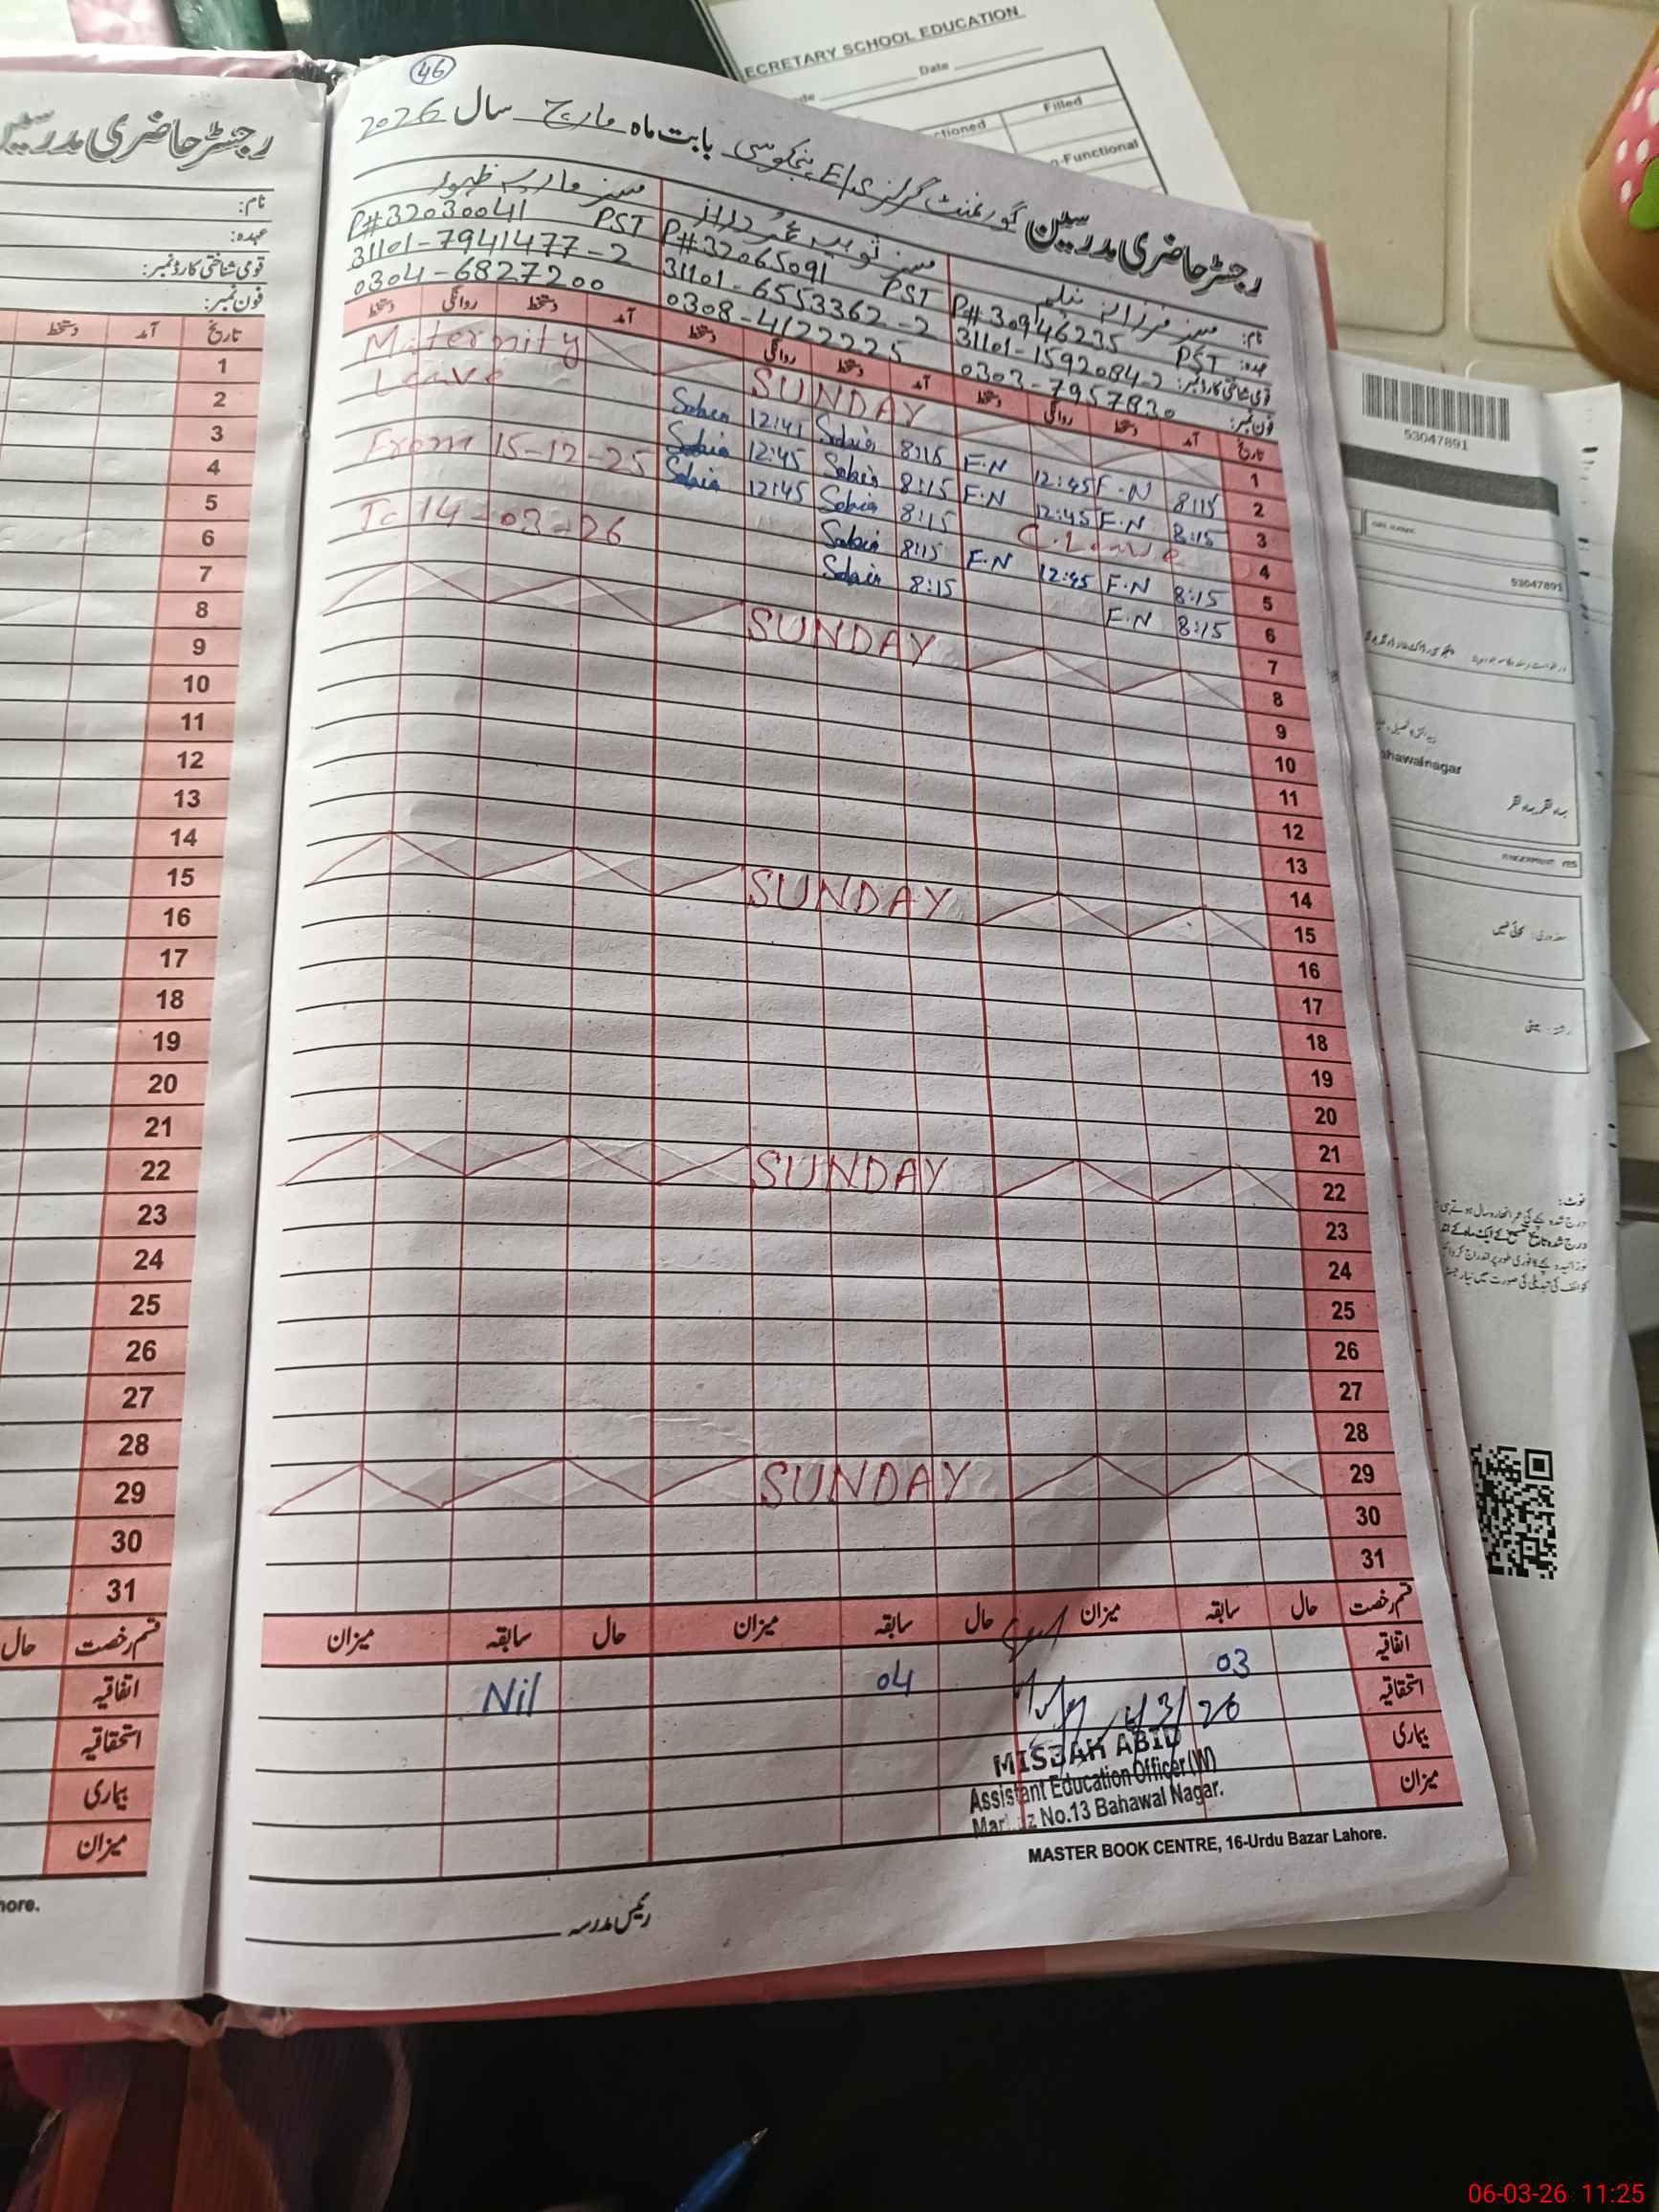 ECRETARY SCHOOL EDUCATION
Date
Filled
ctioned
n-Functional
46
رجسٹر حاضری مدرسین گورنمنٹ گرلز E/S بابت ماہ مارچ سال 2026
نام: مسز فرزانہ نیلم
مسز ثوبیہ عمر دراز
مسز ماریہ ظہور
عہدہ: PST P# 30946235
PST P#32065091
PST P#32030041
قومی شناختی کارڈ نمبر: 31101-1592084-2
31101-6553362-2
31101-7941477-2
فون نمبر: 0303-7957830
0308-4122225
0304-6827200
تاریخ آمد دستخط روانگی دستخط آمد دستخط روانگی دستخط آمد دستخط روانگی دستخط
1 SUNDAY Maternity
2 8:15 F.N 12:45 F.N 8:15 Sobia 12:45 Sobia Leave
3 8:15 F.N 12:45 F.N 8:15 Sobia 12:45 Sobia
4 C.Leave 8:15 Sobia 12:45 Sobia From 15-12-25
5 8:15 F.N 12:45 F.N 8:15 Sobia
6 8:15 F.N 8:15 Sobia To 14-03-26
7
8 SUNDAY
9
10
11
12
13
14
15 SUNDAY
16
17
18
19
20
21
22 SUNDAY
23
24
25
26
27
28
29 SUNDAY
30
31
قسم رخصت حال سابقہ میزان حال سابقہ میزان حال سابقہ میزان
اتفاقیہ 03 04 Nil
استحقاقیہ
بیماری
میزان
6/3/26
MISBAH ABID
Assistant Education Officer(W)
Markaz No.13 Bahawal Nagar.
MASTER BOOK CENTRE, 16-Urdu Bazar Lahore.
رئیس مدرسہ
رجسٹر حاضری مدرسین
نام:
عہدہ:
قومی شناختی کارڈ نمبر:
فون نمبر:
تاریخ آمد دستخط
1
2
3
4
5
6
7
8
9
10
11
12
13
14
15
16
17
18
19
20
21
22
23
24
25
26
27
28
29
30
31
قسم رخصت حال
اتفاقیہ
استحقاقیہ
بیماری
میزان
hore.
53047891
53047891
ahawalnagar
بہاولنگر بہاولنگر
معذوری: کوئی نہیں
رشتہ: بیٹی
نوٹ:
06-03-26 11:25